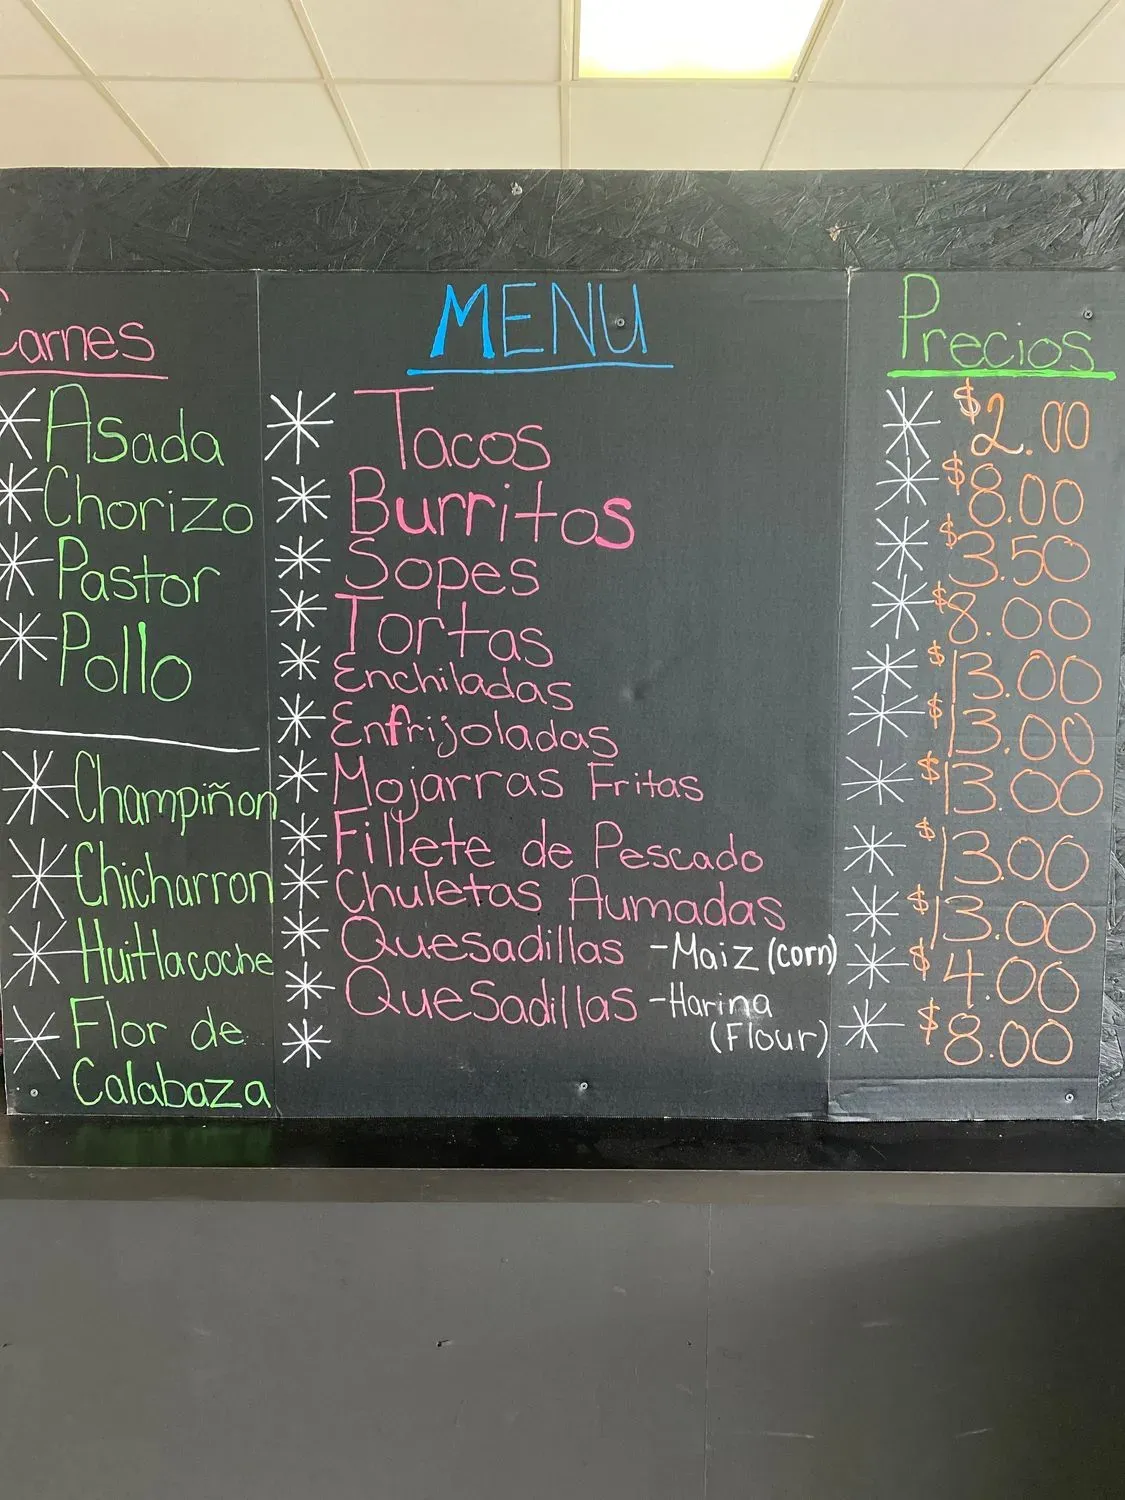 Carnes
Asada
Chorizo
Pastor
Pollo
Champiñon
Chicharron
Huitlacoche
Flor de
Calabaza
MENU
Tacos
Burritos
Sopes
Tortas
Enchiladas
Enfrijoladas
Mojarras Fritas
Fillete de Pescado
Chuletas Aumadas
Quesadillas -Maiz (corn)
Quesadillas -Harina
(Flour)
Precios
$2.00
$8.00
$3.50
$8.00
$13.00
$13.00
$13.00
$13.00
$13.00
$4.00
$8.00